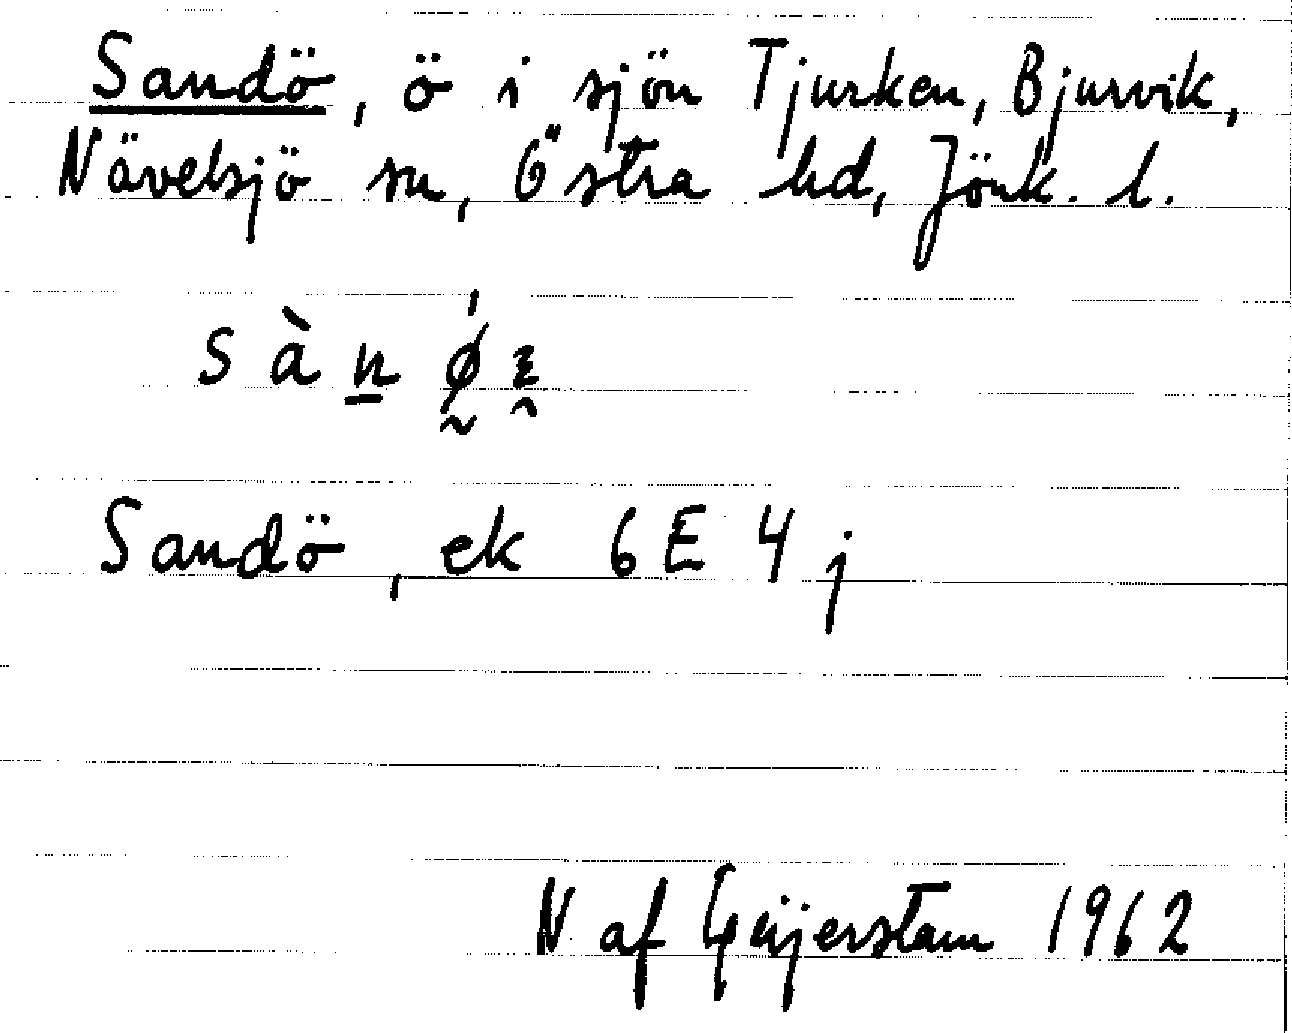 Sandö, ö i sjön Tjurken, Bjurvik,
Nävelsjö sn, Östra hd, Jönk. l.
Sandö, ek 6E 4j
N af Geijerstam 1962